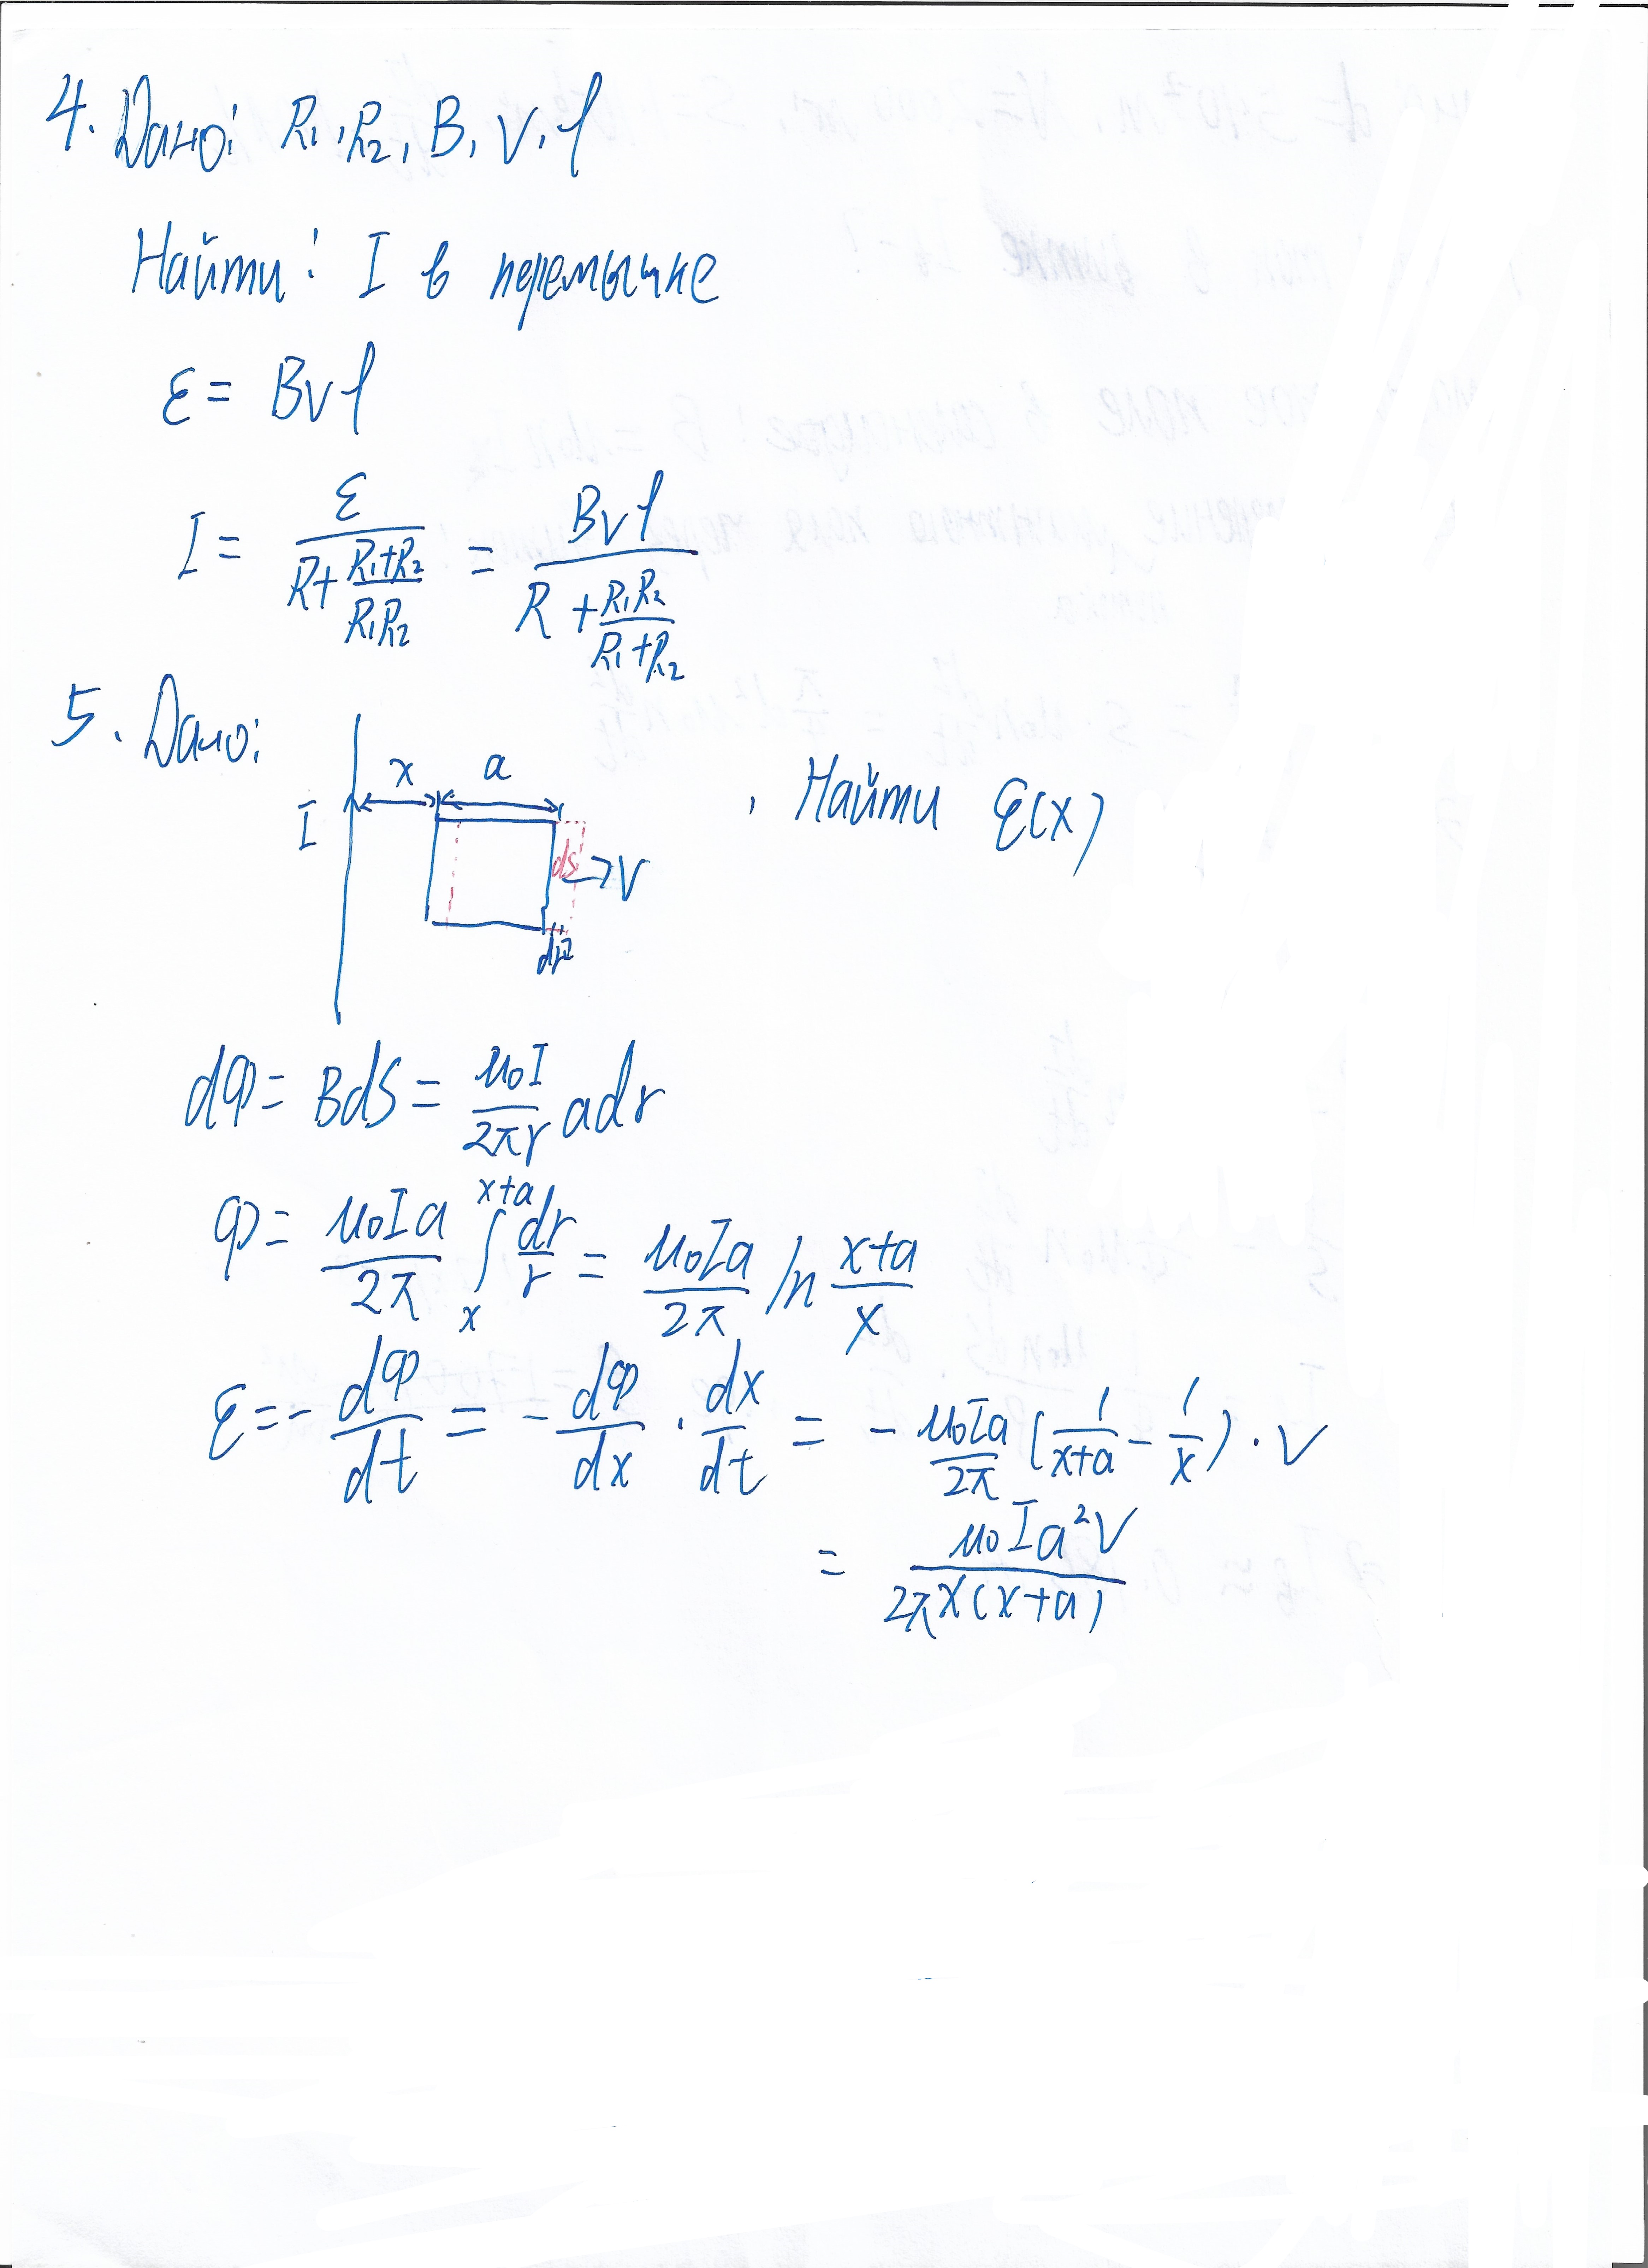 4. Дано: R₁, R₂, B, V, l
Найти: I в перемычке
ε = BVl
I = ε / (R + (R₁+R₂)/(R₁R₂)) = BVl / (R + R₁R₂/(R₁+R₂))
5. Дано:
x a
I
dS
→V
dr
, Найти ε(x)
dφ = BdS = μ₀I/(2πr) adr
φ = μ₀Ia/(2π) ∫ₓˣ⁺ᵃ dr/r = μ₀Ia/(2π) ln (x+a)/x
ε = - dφ/dt = - dφ/dx · dx/dt = - μ₀Ia/(2π) (1/(x+a) - 1/x) · V
= μ₀Ia²V / (2πx(x+a))